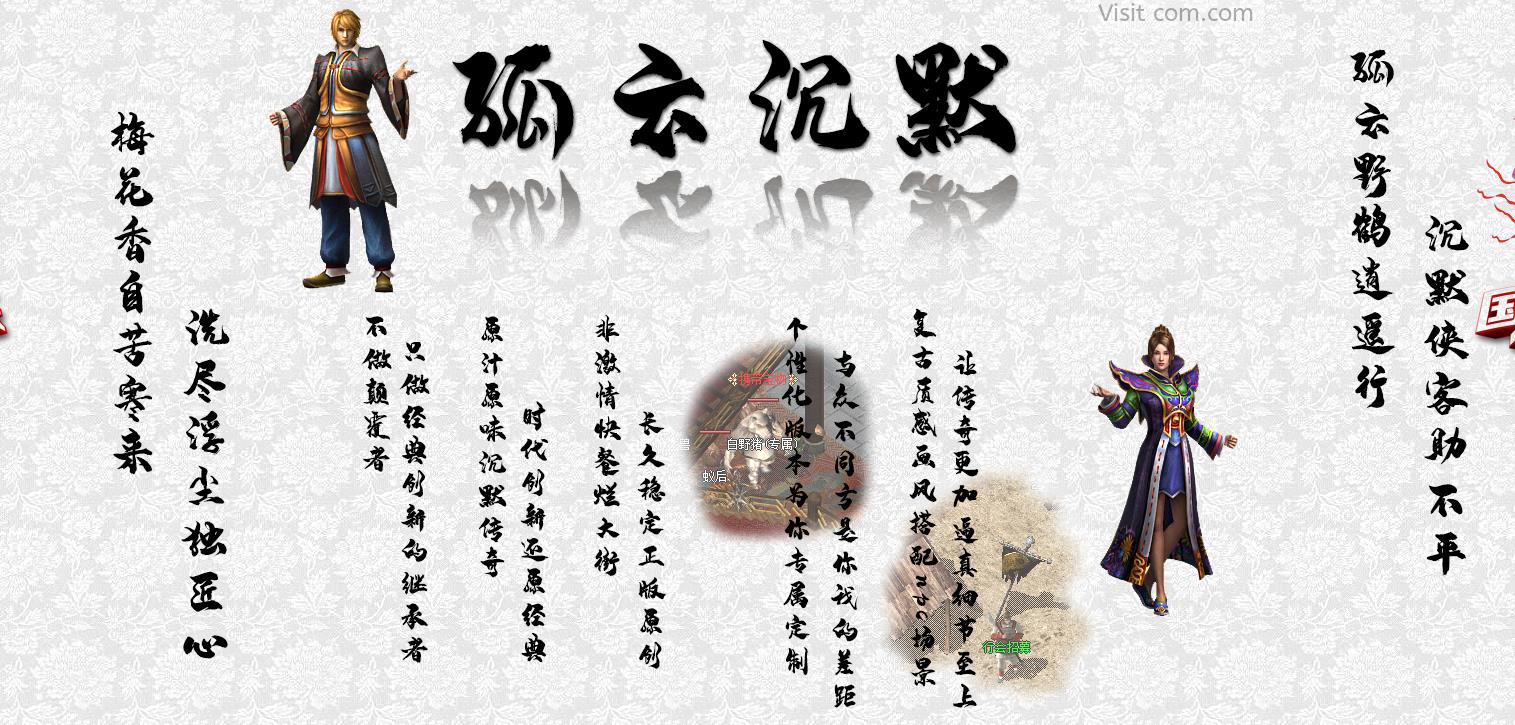 Visit com.com
孤云沉默
孤云野鹤逍遥行
沉默侠客助不平
让传奇更加逼真细节至上
复古质感画风搭配npc场景
与众不同方是你我的差距
个性化版本为你专属定制
长久稳定正版原创
非激情快餐烂大街
时代创新还原经典
原汁原味沉默传奇
只做经典创新的继承者
不做颠覆者
梅花香自苦寒来
洗尽浮尘独匠心
白野猪(专属)
蚁后
行会招募
国